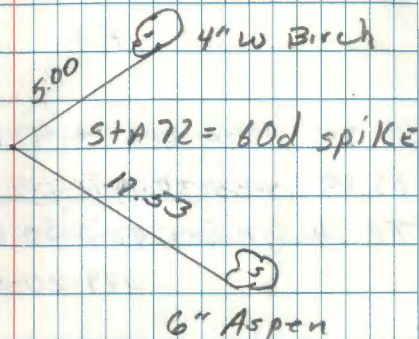 4" W Birch
5.00
StA 72 = 60d spike
12.53
6" Aspen